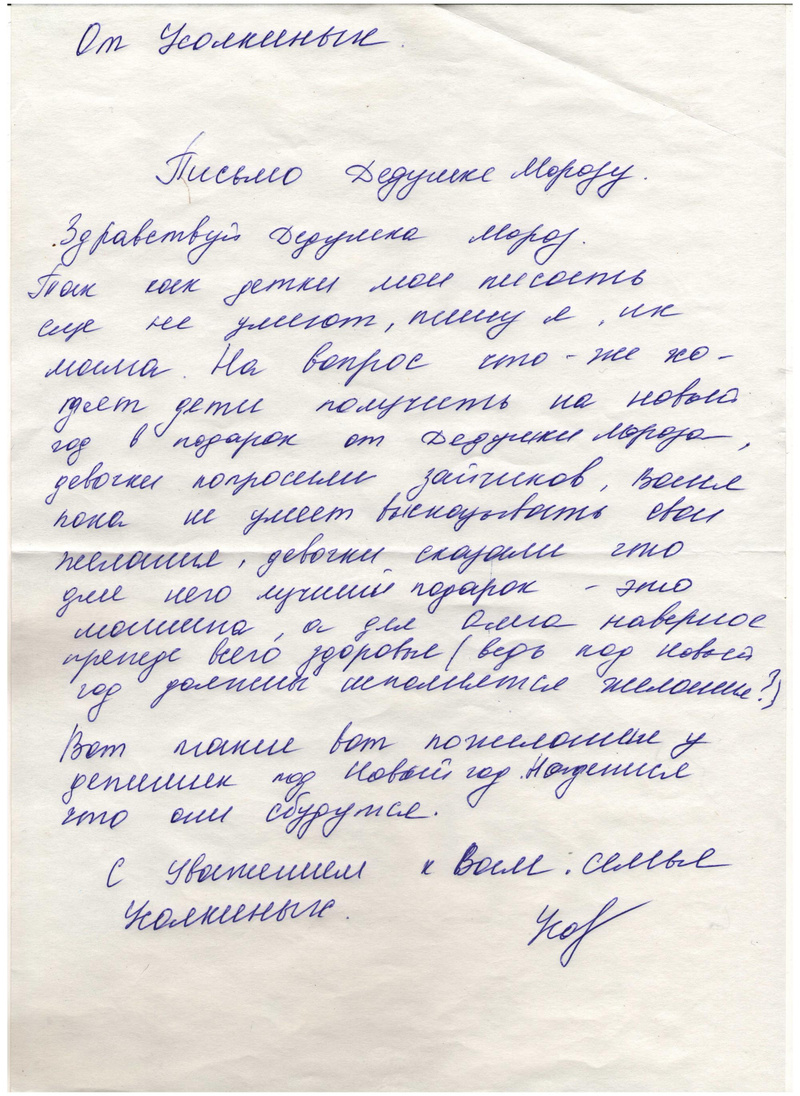 От Усолкиных.
Письмо Дедушке Морозу.
Здравствуй Дедушка Мороз.
Так как детки мои писать
еще не умеют, пишу я, их
мама. На вопрос что-же хо-
тят дети получить на новый
год в подарок от Дедушки Мороза,
девочки попросили зайчиков, Ваня
пока не умеет высказывать свои
желания, девочки сказали что
для него лучший подарок - это
машина, а для Олега наверное
прежде всего здоровья (ведь под новый
год должны исполнятся желания?)
Вот такие вот пожелания у
детишек под Новый год. Надеемся
что они сбудутся.
С уважением к Вам. семья
Усолкиных.